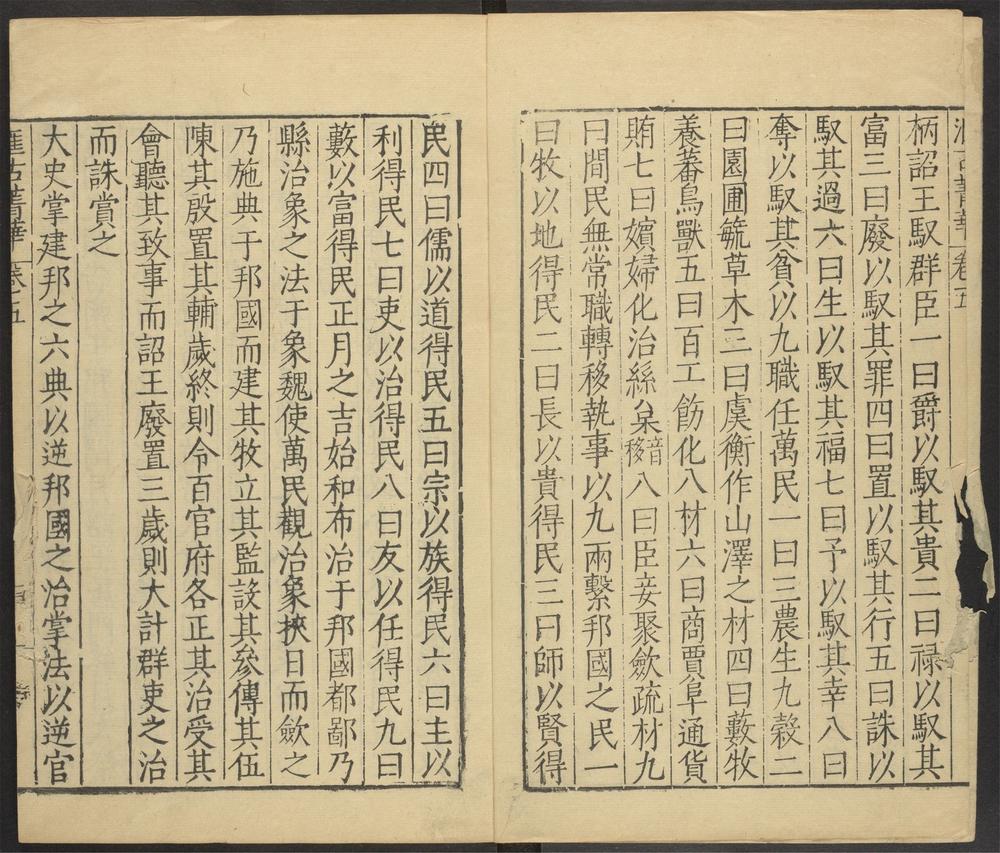 匯古菁華 卷五
柄詔王馭群臣一曰爵以馭其貴二曰祿以馭其
富三曰廢以馭其罪四曰置以馭其行五曰誅以
馭其過六曰生以馭其福七曰予以馭其幸八曰
奪以馭其貧以九職任萬民一曰三農生九穀二
曰園圃毓草木三曰虞衡作山澤之材四曰藪牧
養蕃鳥獸五曰百工飭化八材六曰商賈阜通貨
賄七曰嬪婦化治絲枲音移八曰臣妾聚斂疏材九
曰間民無常職轉移執事以九兩繫邦國之民一
曰牧以地得民二曰長以貴得民三曰師以賢得
民四曰儒以道得民五曰宗以族得民六曰主以
利得民七曰吏以治得民八曰友以任得民九曰
藪以富得民正月之吉始和布治于邦國都鄙乃
縣治象之法于象魏使萬民觀治象挾日而斂之
乃施典于邦國而建其牧立其監設其參傳其伍
陳其殷置其輔歲終則令百官府各正其治受其
會聽其致事而詔王廢置三歲則大計群吏之治
而誅賞之
大史掌建邦之六典以逆邦國之治掌法以逆官
匯古菁華 卷五